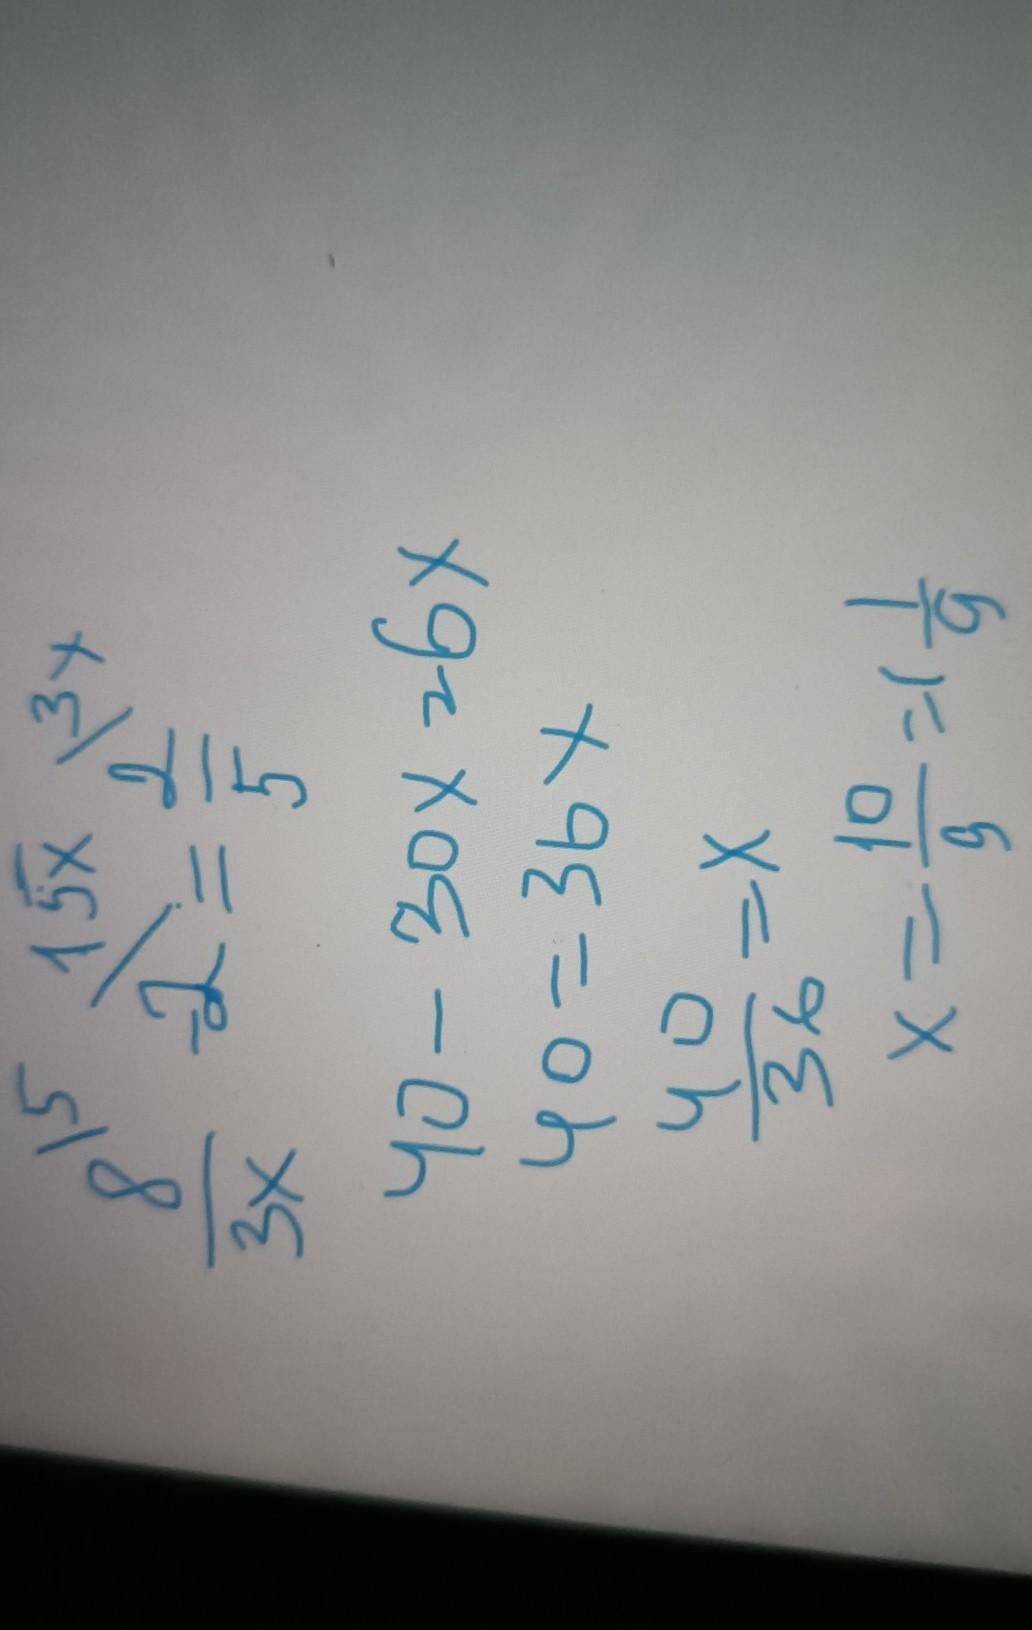 8/5 15x/ /3x
8/3x - 2 = 2/5
40 - 30x = 6x
40 = 36x
40/36 = x
x = 10/9 = 1 1/9